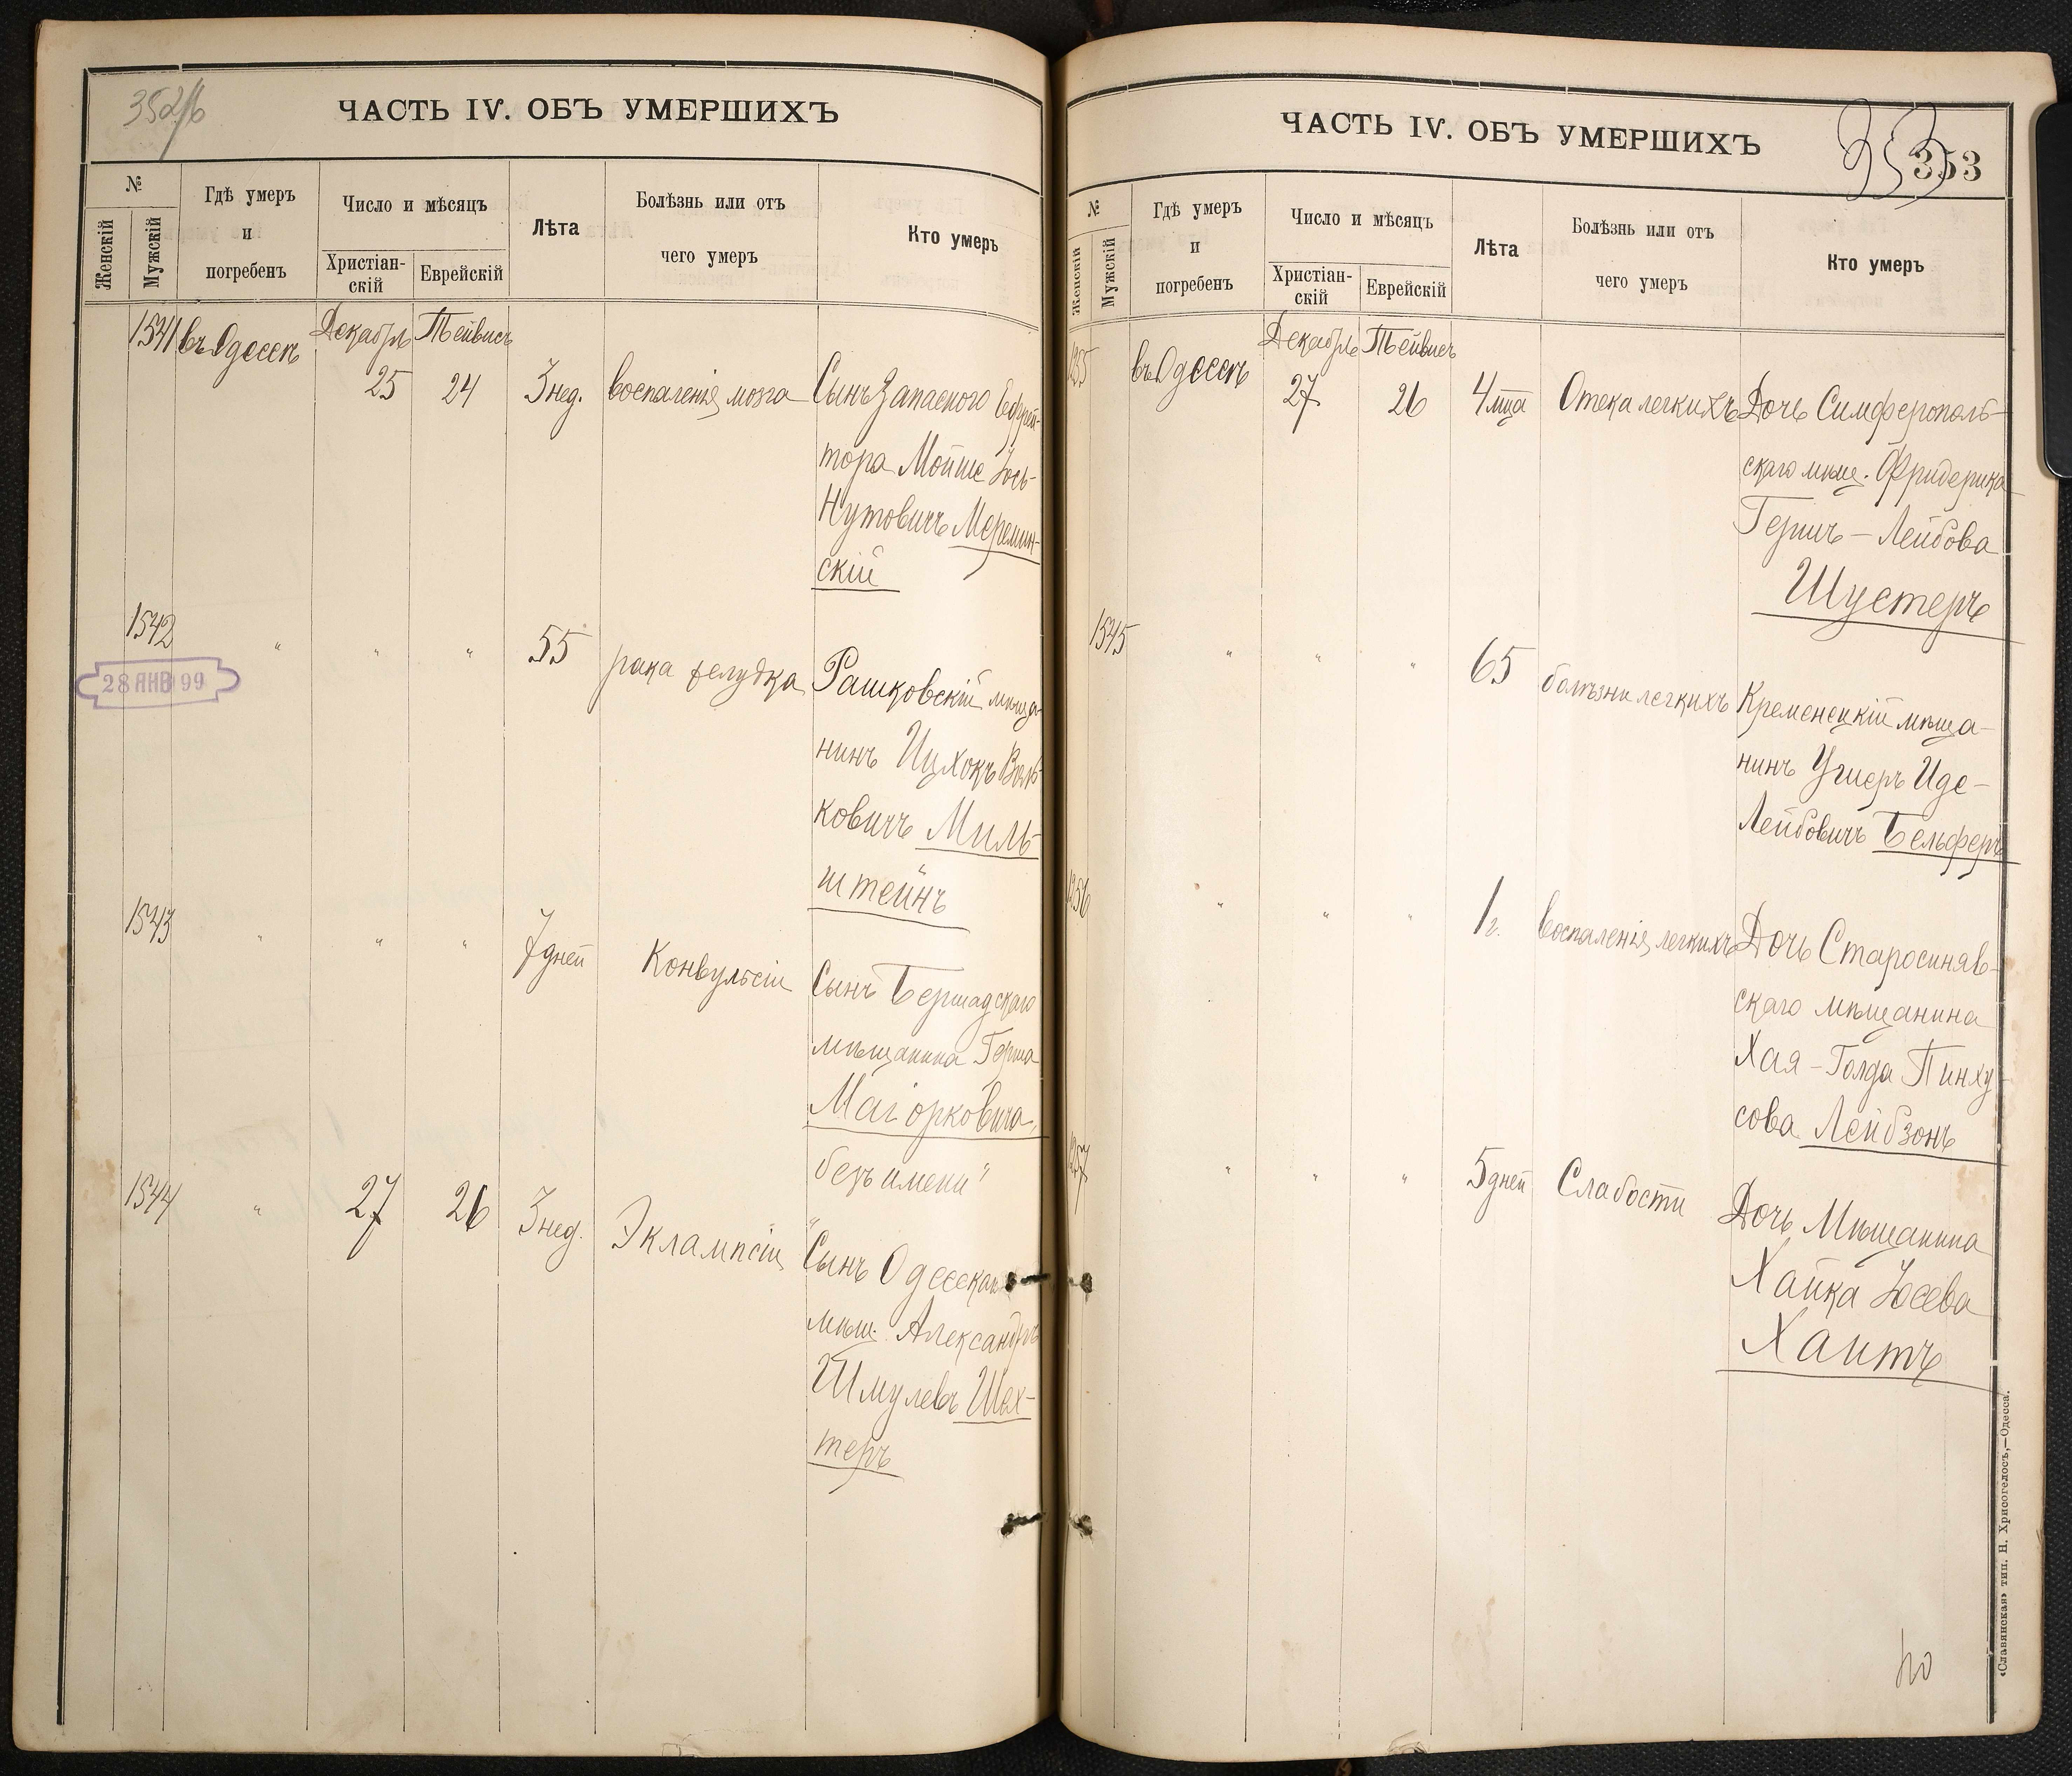 352/б
ЧАСТЬ IV. ОБЪ УМЕРШИХЪ
№
Женскій
Мужскій
Гдѣ умеръ
и
погребенъ
Число и мѣсяцъ
Христіан-
скій
Еврейскій
Лѣта
Болѣзнь или отъ
чего умеръ
Кто умеръ
1541 въ Одессѣ Декабрь Тейвисъ
25 24 3 нед. воспаленія мозга Сынъ Запаснаго Ефрей-
тора Мойше Іось-
Нутовичъ Меремин-
скій
1542 " " " 55 рака желудка Рашковскій мѣща-
28 ЯНВ 99
нинъ Ицхокъ Воль-
ковичъ Миль-
штейнъ
1543 " " " 7 дней Конвульсіи Сынъ Бершадскаго
мѣщанина Герша
Магорковича,
безъ имени"
1544 " 27 26 3 нед. Эклампсіи "Сынъ Одесскаго
мѣщ. Александръ
Шмулевъ Шех-
теръ
ЧАСТЬ IV. ОБЪ УМЕРШИХЪ
353
353
№
Женскій
Мужскій
Гдѣ умеръ
и
погребенъ
Число и мѣсяцъ
Христіан-
скій
Еврейскій
Лѣта
Болѣзнь или отъ
чего умеръ
Кто умеръ
1255 въ Одессѣ Декабрь Тейвисъ
27 26 4 мца Отека легкихъ Дочь Симферополь-
скаго мѣщ. Фридерика
Гершъ-Лейбова
Шустеръ
1545 " " " 65 болѣзни легкихъ Кременецкій мѣща-
нинъ Ушеръ Иде-
Лейбовичъ Бельферъ
1256 " " " 1 г. воспаленія легкихъ Дочь Старосиняв-
скаго мѣщанина
Хая-Голда Пинху-
сова Лейбзонъ
1257 " " " 5 дней Слабости Дочь Мѣщанина
Хайка Іосева
Хаитъ
«Славянская» тип. Н. Хрисогелосъ,—Одесса.